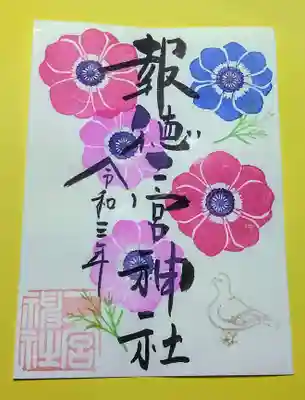 報徳三宮神社
令和三年